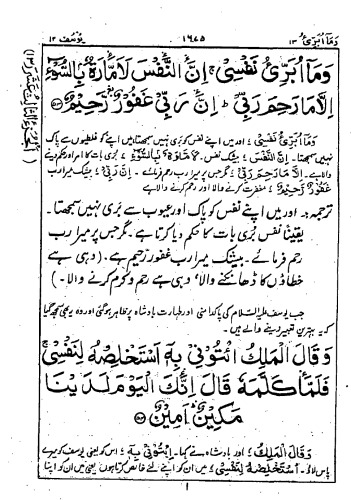 وَمَآ اُبَرِّئُ ۱۳ ۱۶۷۵ یوسف ۱۲
وَمَآ اُبَرِّئُ نَفْسِیْ ۚ اِنَّ النَّفْسَ لَاَمَّارَةٌۢ بِالسُّوْٓءِ
اِلَّا مَا رَحِمَ رَبِّیْ ؕ اِنَّ رَبِّیْ غَفُوْرٌ رَّحِیْمٌ ﴿۵۳﴾
وَمَآ اُبَرِّئُ نَفْسِیْ ؛ اور میں اپنے نفس کو بَری نہیں سمجھتا میں اپنے کو غلطیوں سے پاک
نہیں سمجھتا۔ اِنَّ النَّفْسَ ؛ بیشک نفس۔ لَاَمَّارَةٌۢ بِالسُّوْٓءِ ؛ بری بات کا امر اور حکم دینے
والا ہے۔ اِلَّا مَا رَحِمَ رَبِّیْ ؛ مگر جس پر میرا رب رحم فرمائے۔ اِنَّ رَبِّیْ ؛ بیشک میرا رب
غَفُوْرٌ رَّحِیْمٌ ؛ مغفرت کرنے والا اور رحم کرنے والا ہے
ترجمہ:۔ اور میں اپنے نفس کو پاک اور عیوب سے بَری نہیں سمجھتا۔
یقیناً نفس بُری بات کا حکم دیا کرتا ہے۔ مگر جس پر میرا رب
رحم فرمائے۔ بیشک میرا رب غفور رحیم ہے۔ (وہی ہے
خطاؤں کا ڈھانکنے والا، وہی ہے رحم و کرم کرنے والا۔)
جب یوسف علیہ السلام کی پاکدامنی اور طہارت بادشاہ پر ظاہر ہوگئی اور وہ یہ بھی سمجھ گیا
کہ یہ بہترین تعبیر دینے والے ہیں۔
وَقَالَ الْمَلِكُ ائْتُوْنِیْ بِهٖٓ اَسْتَخْلِصْهُ لِنَفْسِیْ ۚ
فَلَمَّا كَلَّمَهٗ قَالَ اِنَّكَ الْیَوْمَ لَدَیْنَا
مَكِیْنٌ اَمِیْنٌ ﴿۵۴﴾
وَقَالَ الْمَلِكُ ؛ اور بادشاہ نے کہا۔ ائْتُوْنِیْ بِهٖٓ ؛ اس کو یعنی یوسف کو میرے
پاس لاؤ۔ اَسْتَخْلِصْهُ لِنَفْسِیْ ؛ میں ان کو اپنے لئے خاص کرتا ہوں یعنی میں ان کو اپنا